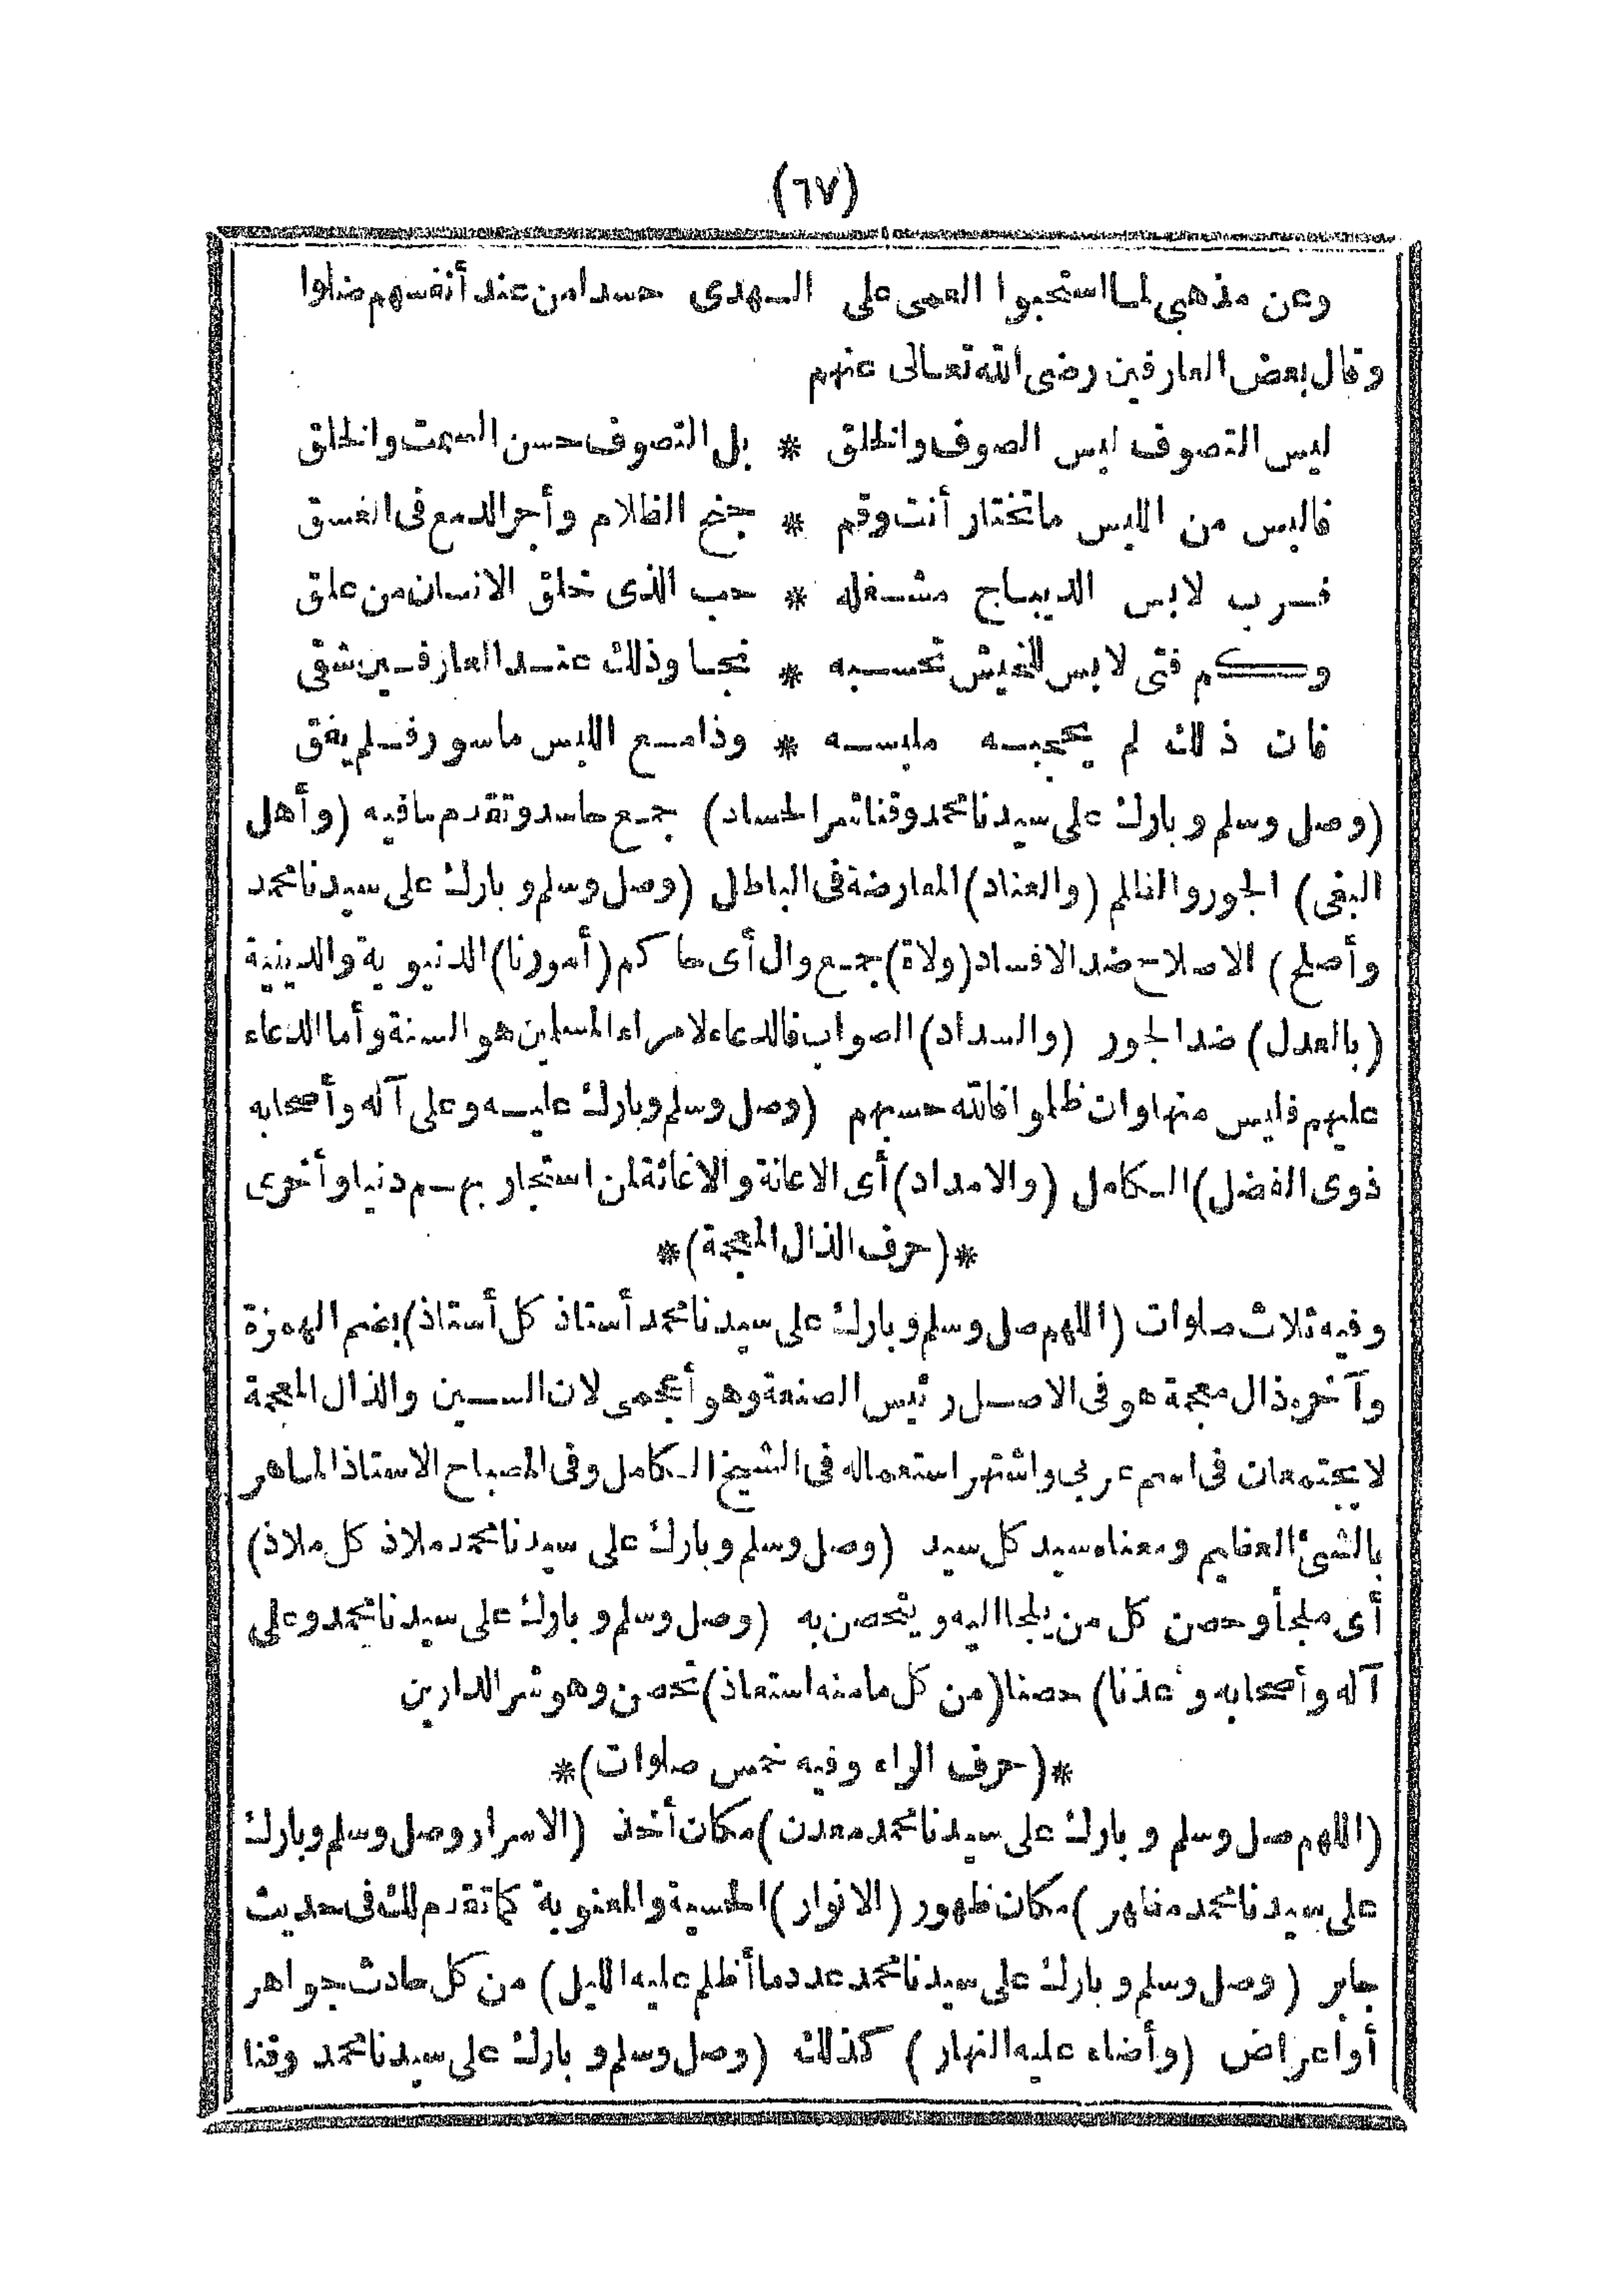 (٦٧)
وعن مذهبي لما استحبوا العمى على الهدى حسدا من عند أنفسهم ضلوا
وقال بعض العارفين رضى الله تعالى عنهم
ليس التصوف لبس الصوف والخلق * بل التصوف حسن السمت والخلق
فالبس من اللبس ما تختار أنت وقم * جنح الظلام وأجر الدمع فى الغسق
فرب لابس الديباج مشغله * حب الذى خلق الانسان من علق
وكم فتى لابس للخيش تحسبه * نجا وذلك عند العارفين شقى
فان ذلك لم يحجبه ملبسه * وذا مع اللبس مأسور فلم يفق
(وصل وسلم وبارك على سيدنا محمد وقنا شر الحساد) جمع حاسد وتقدم ما فيه (وأهل
البغى) الجور والظلم (والعناد) المعارضة فى الباطل (وصل وسلم وبارك على سيدنا محمد
وأصلح) الاصلاح ضد الافساد (ولاة) جمع وال أى حاكم (أمورنا) الدنيوية والدينية
(بالعدل) ضد الجور (والسداد) الصواب فالدعاء لامراء المسلمين هو السنة وأما الدعاء
عليهم فليس منها وان ظلموا فالله حسبهم (وصل وسلم وبارك عليه وعلى آله وأصحابه
ذوى الفضل) الكامل (والامداد) أى الاعانة والاغاثة لمن استجار بهم دنيا وأخرى
*(حرف الذال المعجمة)*
وفيه ثلاث صلوات (اللهم صل وسلم وبارك على سيدنا محمد أستاذ كل أستاذ) بضم الهمزة
وآخره ذال معجمة هو فى الاصل رئيس الصنعة وهو أعجمى لان السين والذال المعجمة
لا يجتمعان فى اسم عربى واشتهر استعماله فى الشيخ الكامل وفى المصباح الاستاذ الماهر
بالشئ العظيم ومعناه سيد كل سيد (وصل وسلم وبارك على سيدنا محمد ملاذ كل ملاذ)
أى ملجأ وحصن كل من يلجا اليه ويتحصن به (وصل وسلم وبارك على سيدنا محمد وعلى
آله وأصحابه وأعذنا) حصنا (من كل ما منه استعاذ) تحصن وهو شر الدارين
*(حرف الراء وفيه خمس صلوات)*
(اللهم صل وسلم وبارك على سيدنا محمد معدن) مكان أخذ (الاسرار وصل وسلم وبارك
على سيدنا محمد مظهر) مكان ظهور (الانوار) الحسية والمعنوية كما تقدم لك فى حديث
جابر (وصل وسلم وبارك على سيدنا محمد عدد ما أظلم عليه الليل) من كل حادث جواهر
أو اعراض (وأضاء عليه النهار) كذلك (وصل وسلم وبارك على سيدنا محمد وقنا